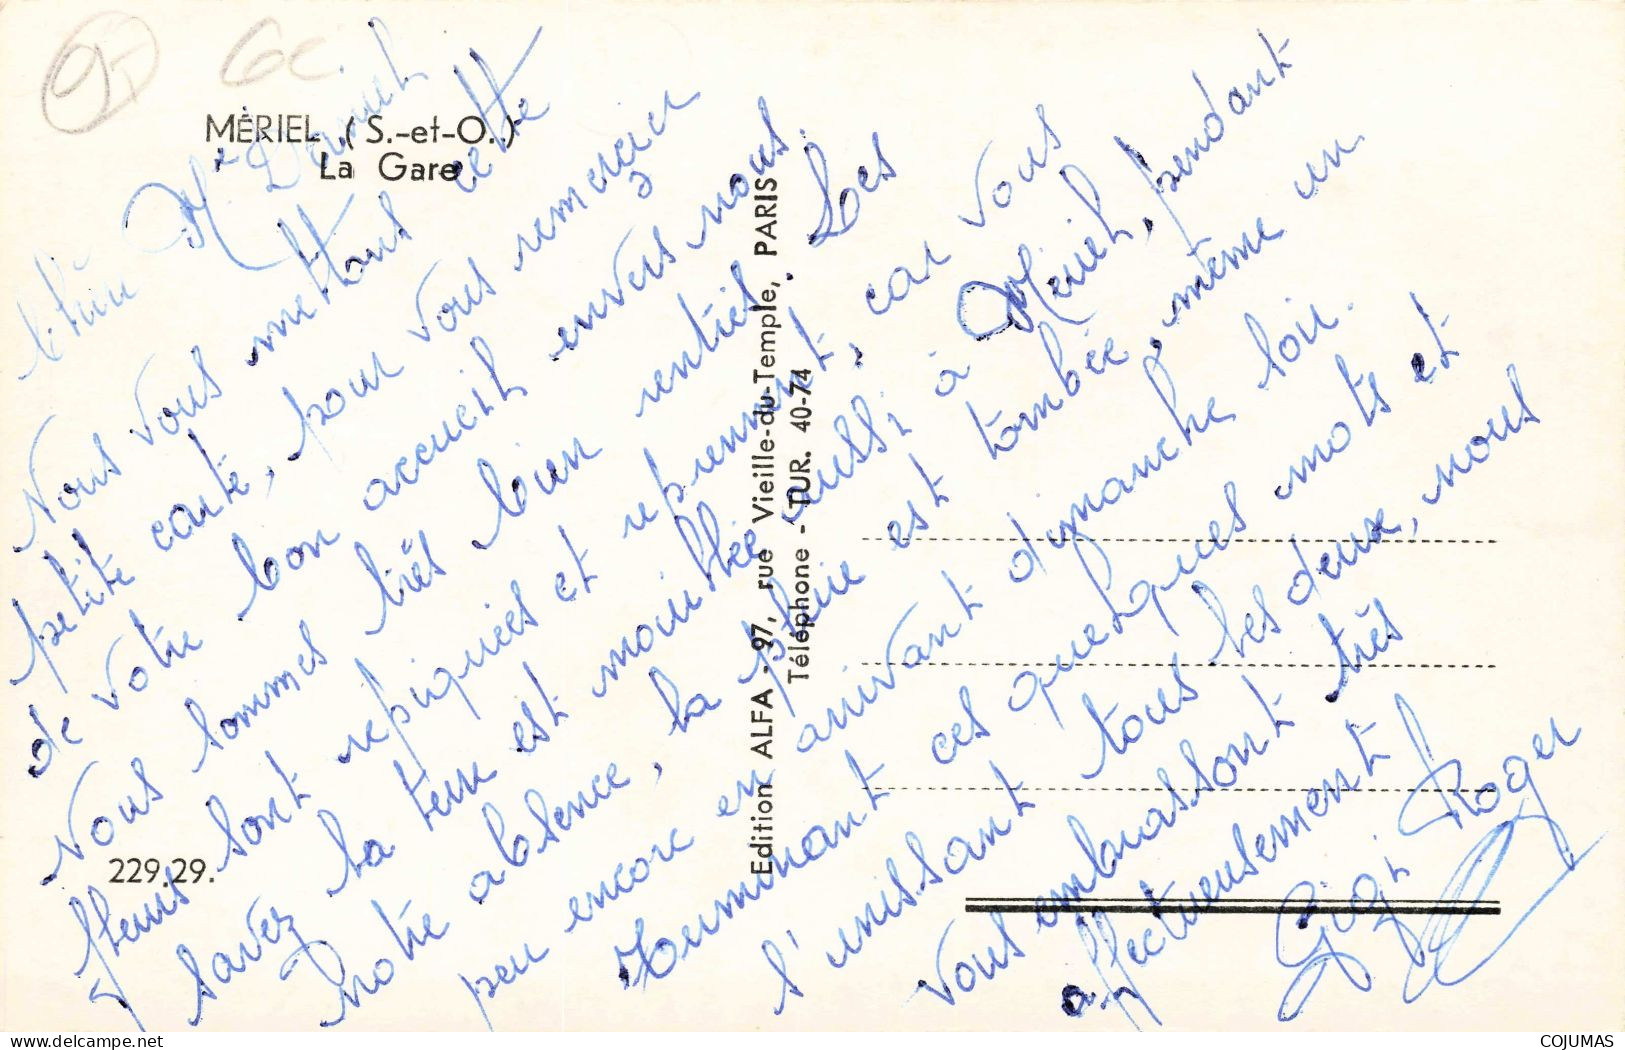 95
6€
MÉRIEL (S.-et-O.)
La Gare
Nous vous mettons cette
petite carte, pour vous remercier
de votre bon accueil envers nous.
Nous sommes très bien rentrés. Les
fleurs sont repiquées et reprennent, car vous
savez la terre est mouillée aussi à Mériel, pendant
notre absence, la pluie est tombée, même un
peu encore en arrivant dimanche soir.
Terminant ces quelques mots et
s'unissant tous les deux, nous
vous embrassont très
affectueusement
Gigi Roger
Edition ALFA - 97, rue Vieille-du-Temple, PARIS
Téléphone - TUR. 40-74
229.29.
COJUMAS